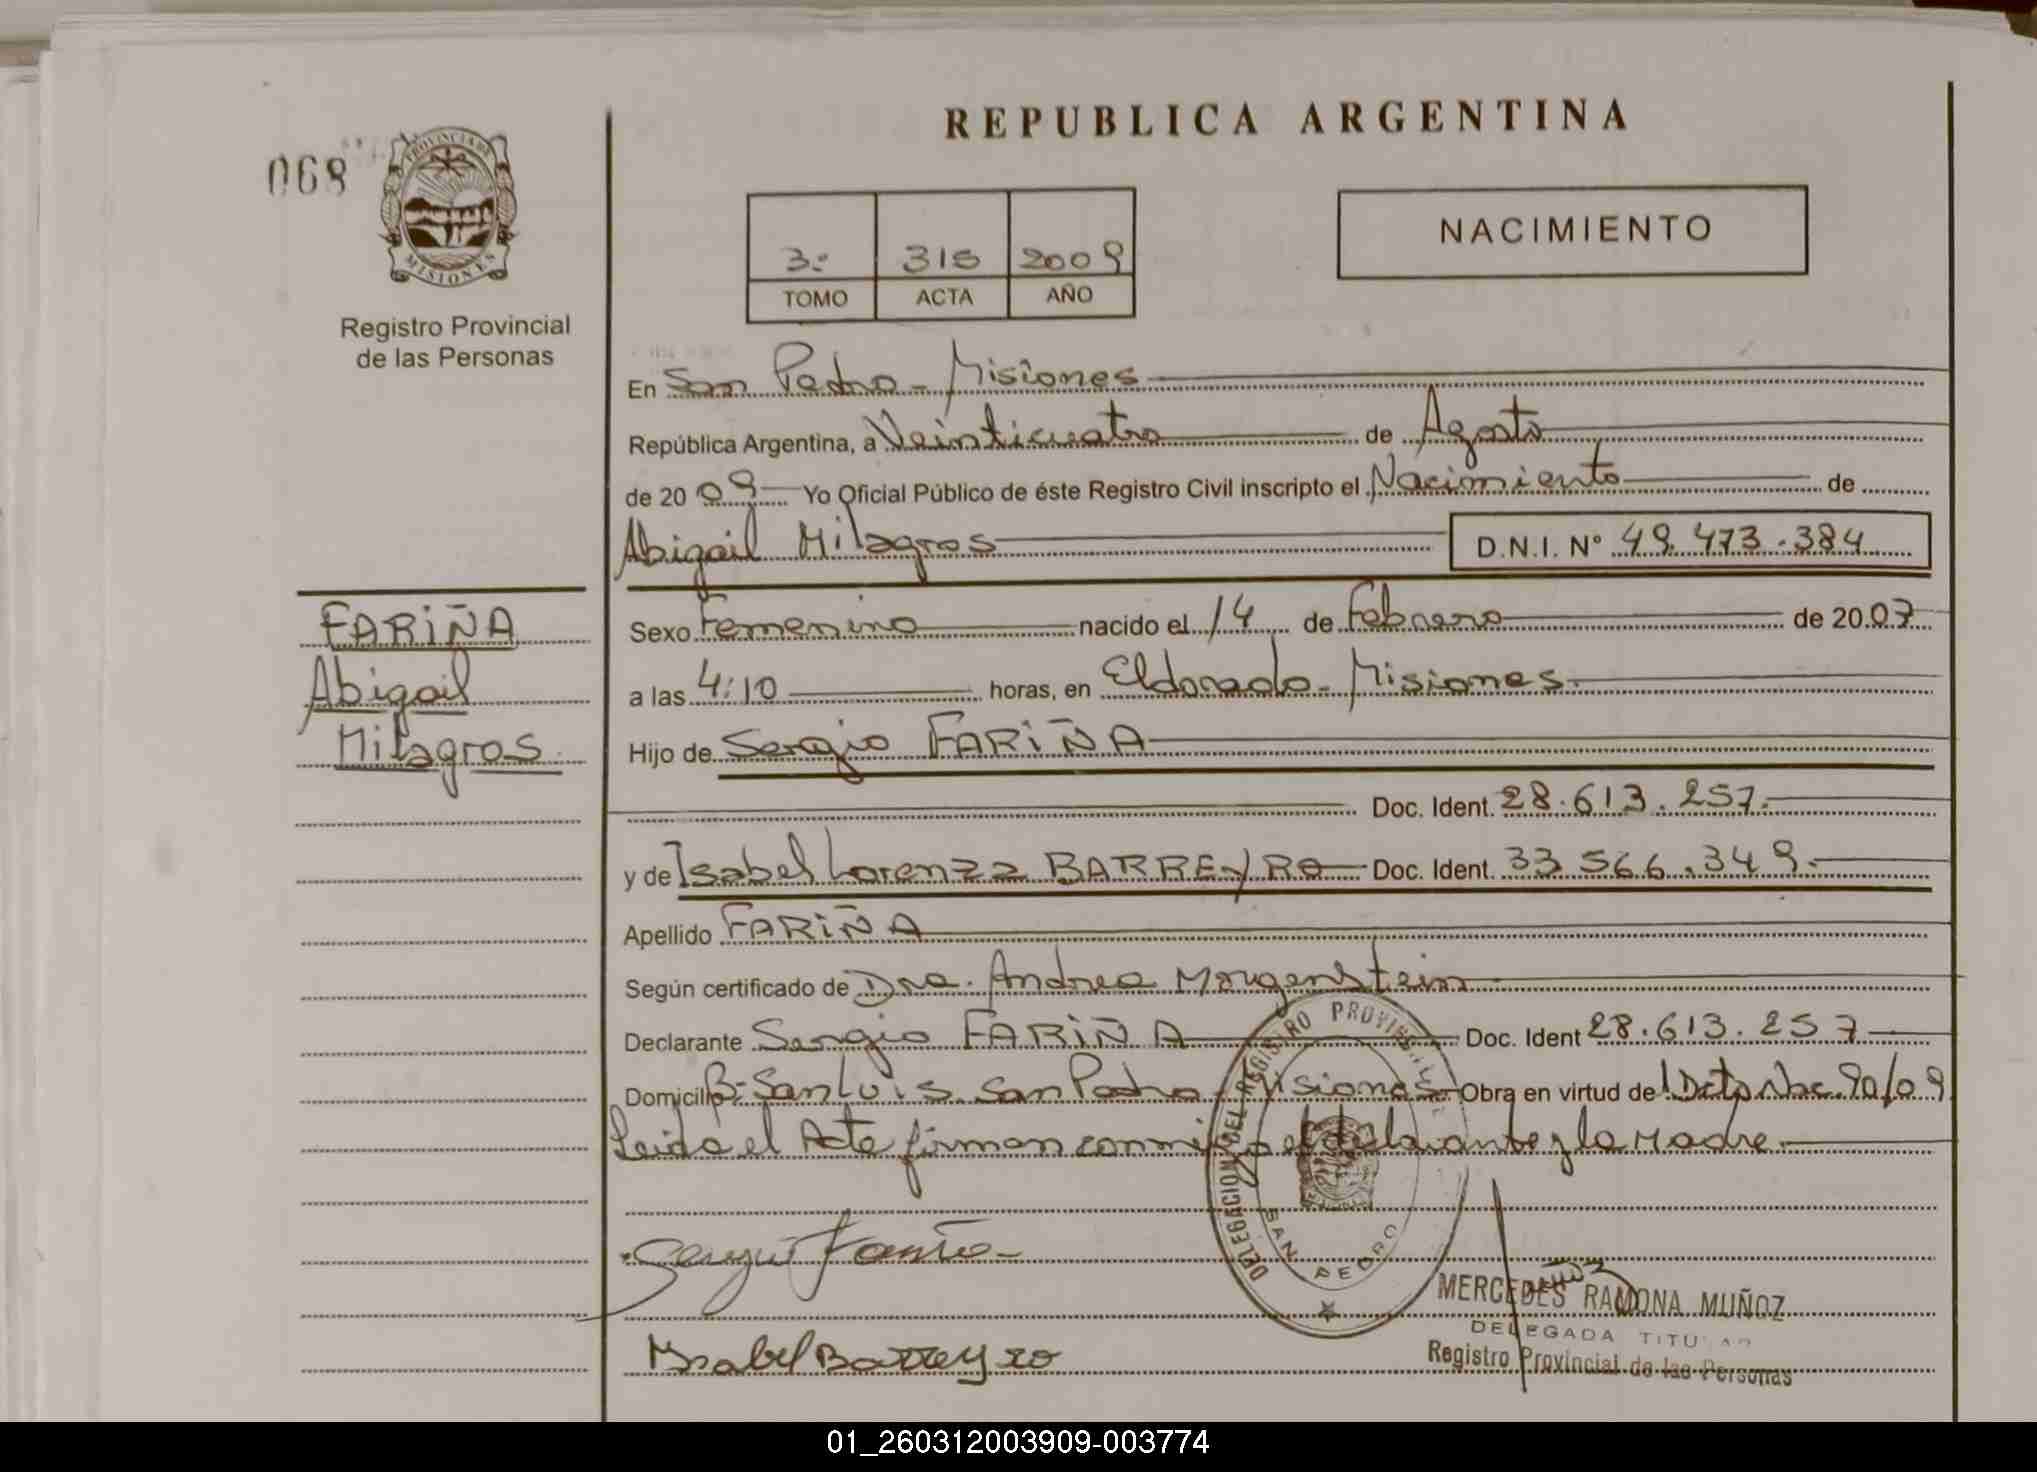 REPUBLICA ARGENTINA
068
PROVINCIA DE
MISIONES
Registro Provincial
de las Personas
NACIMIENTO
3º 315 2009
TOMO ACTA AÑO
En San Pedro - Misiones
República Argentina, a Veinticuatro de Agosto
de 20 09 Yo Oficial Público de éste Registro Civil inscripto el Nacimiento de
Abigail Milagros D.N.I. Nº 49.473.384
FARIÑA
Abigail
Milagros
Sexo Femenino nacido el 14 de Febrero de 20 07
a las 4:10 horas, en Eldorado - Misiones
Hijo de Sergio FARIÑA
Doc. Ident. 28.613.257
y de Isabel Lorenza BARREYRO Doc. Ident. 33.566.349
Apellido FARIÑA
Según certificado de Dra. Andrea Morgenstein
Declarante Sergio FARIÑA Doc. Ident 28.613.257
Domicilio Bº San Luis San Pedro - Misiones Obra en virtud de Dcto Nac. 90/09
Leida el Acta firman conmigo el declarante y la Madre
DELEGACION DEL REGISTRO PROVINCIAL
SAN PEDRO
Sergio Fariña
MERCEDES RAMONA MUÑOZ
DELEGADA TITULAR
Registro Provincial de las Personas
Ysabel Barreyro
01_260312003909-003774